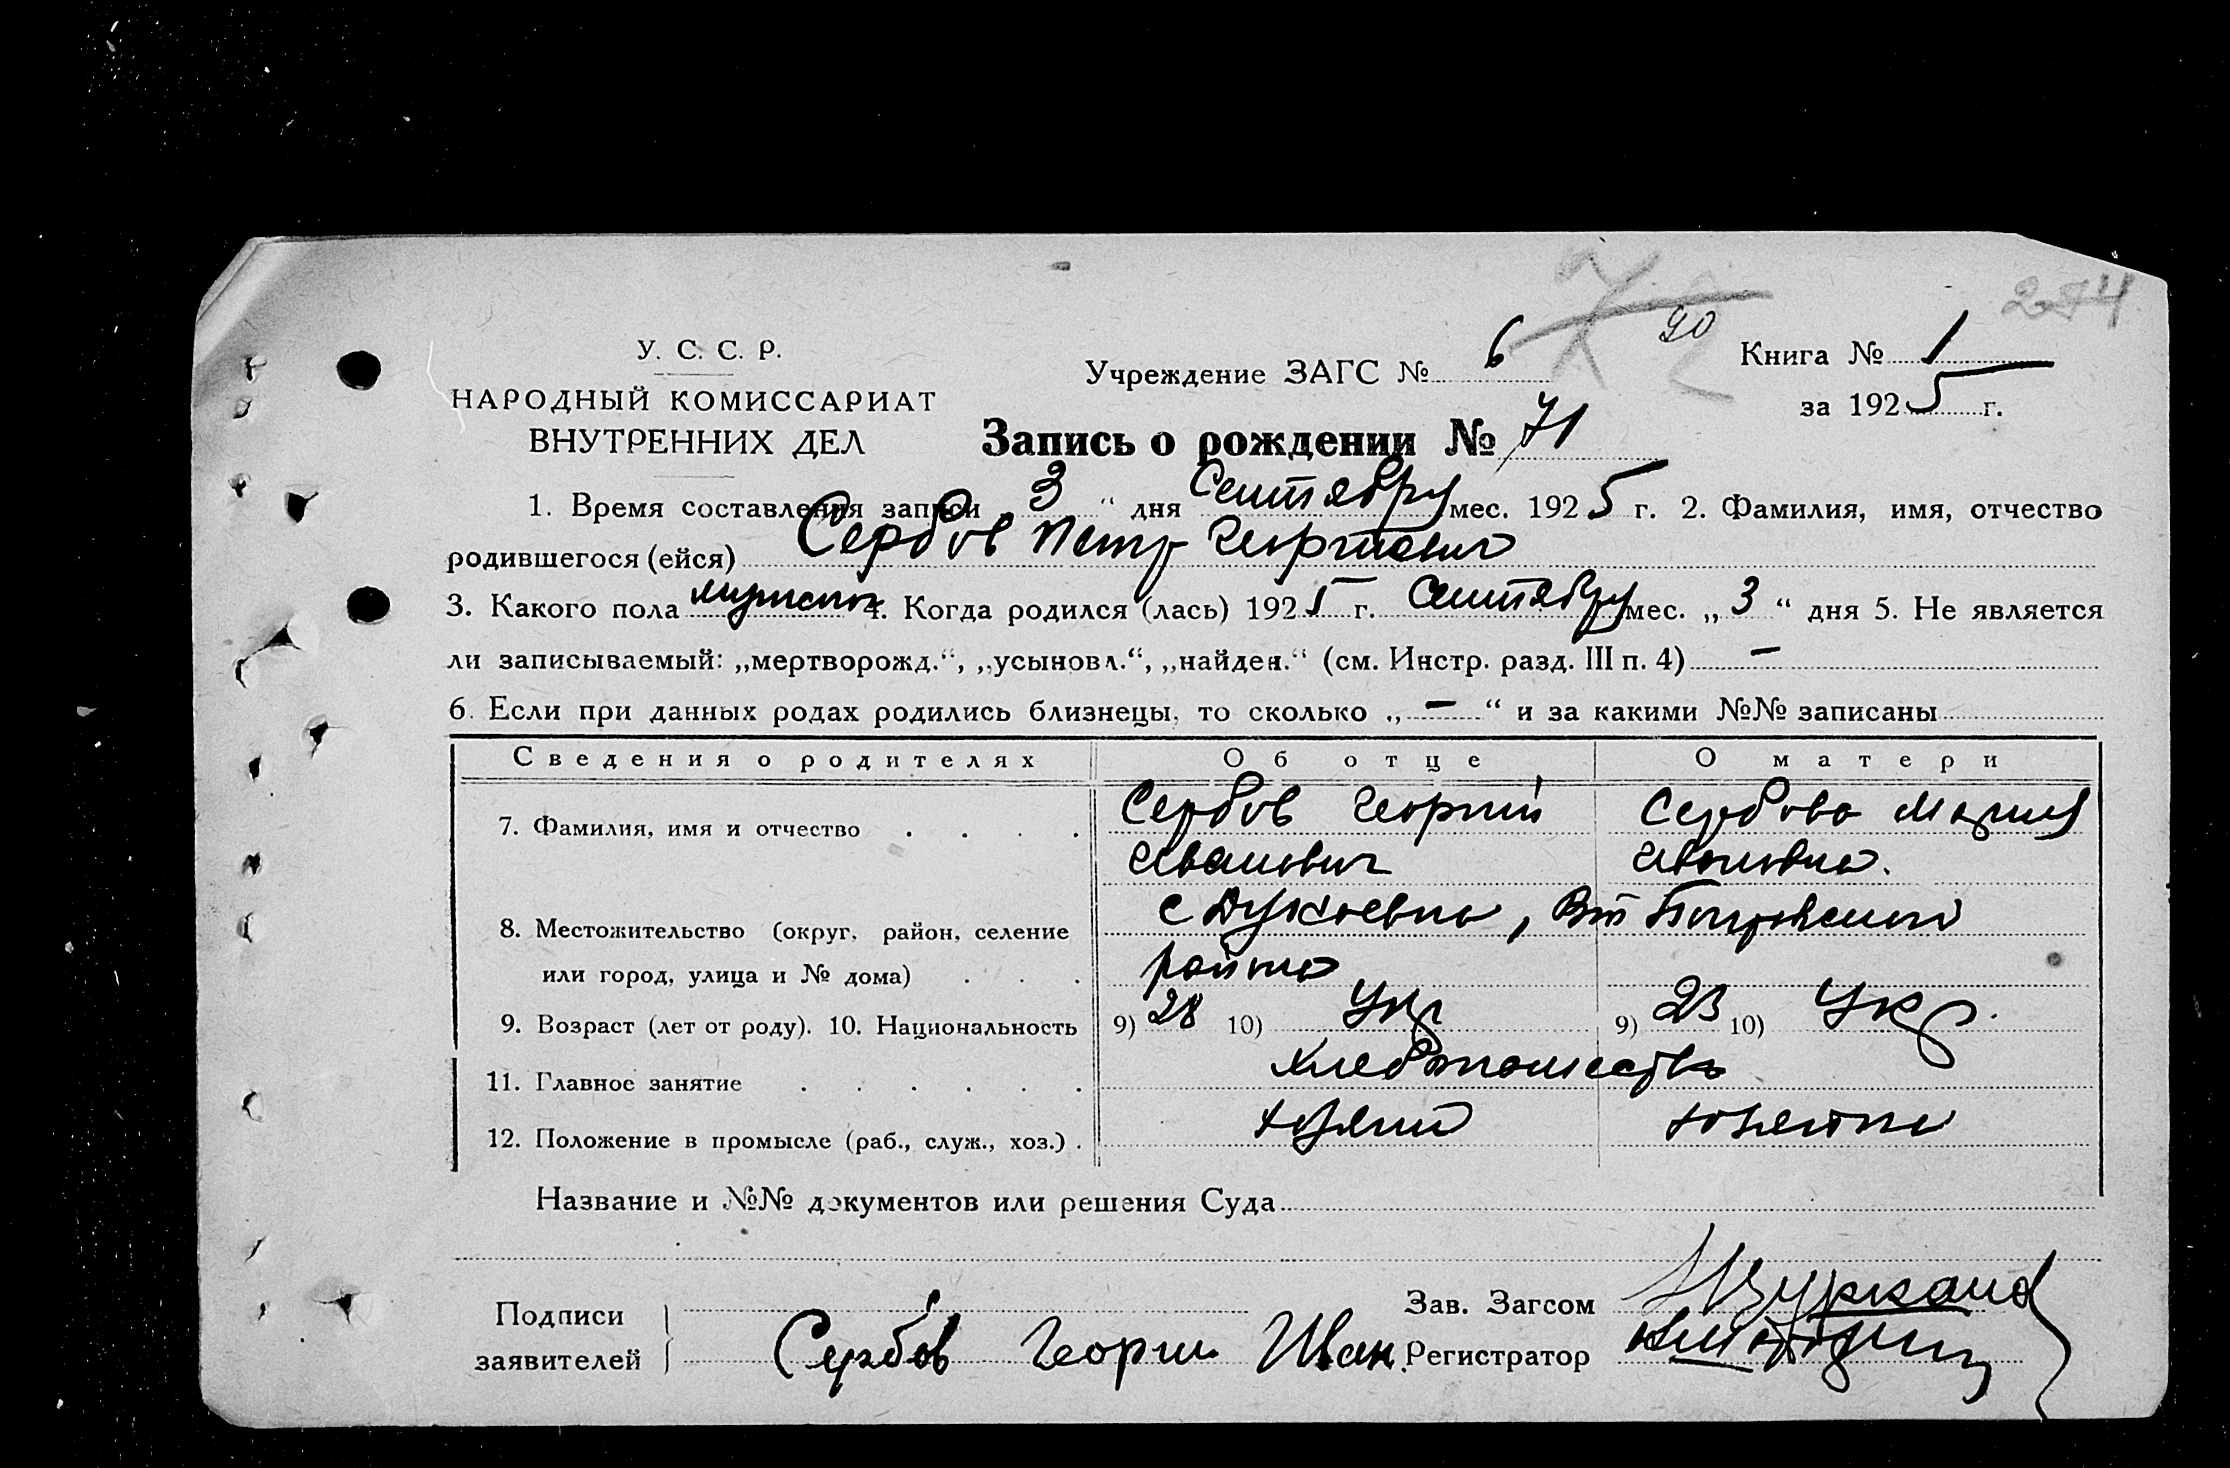 274
90
У. С. С. Р.
НАРОДНЫЙ КОМИССАРИАТ
ВНУТРЕННИХ ДЕЛ
Учреждение ЗАГС № 6
Книга № 1
за 1925 г.
Запись о рождении № 71
1. Время составления записи „ 3 “ дня Сентября мес. 1925 г. 2. Фамилия, имя, отчество
родившегося (ейся) Сербов Петр Георгиевич
3. Какого пола мужского 4. Когда родился (лась) 1925 г. Сентября мес. „ 3 “ дня 5. Не является
ли записываемый: „мертворожд.“, „усыновл.“, „найден.“ (см. Инстр. разд. III п. 4) —
6. Если при данных родах родились близнецы, то сколько „ — “ и за какими №№ записаны
Сведения о родителях Об отце О матери
7. Фамилия, имя и отчество Сербов Георгий Сербова Мария
Иванович Ивановна.
8. Местожительство (округ, район, селение с , Вт Покровского
или город, улица и № дома) района
9. Возраст (лет от роду). 10. Национальность 9) 28 10) Укр 9) 23 10) Укр.
11. Главное занятие хлебопашество
12. Положение в промысле (раб., служ., хоз.) хозяин хозяйка
Название и №№ документов или решения Суда
Подписи Зав. Загсом
заявителей Сербов Георги Иван. Регистратор